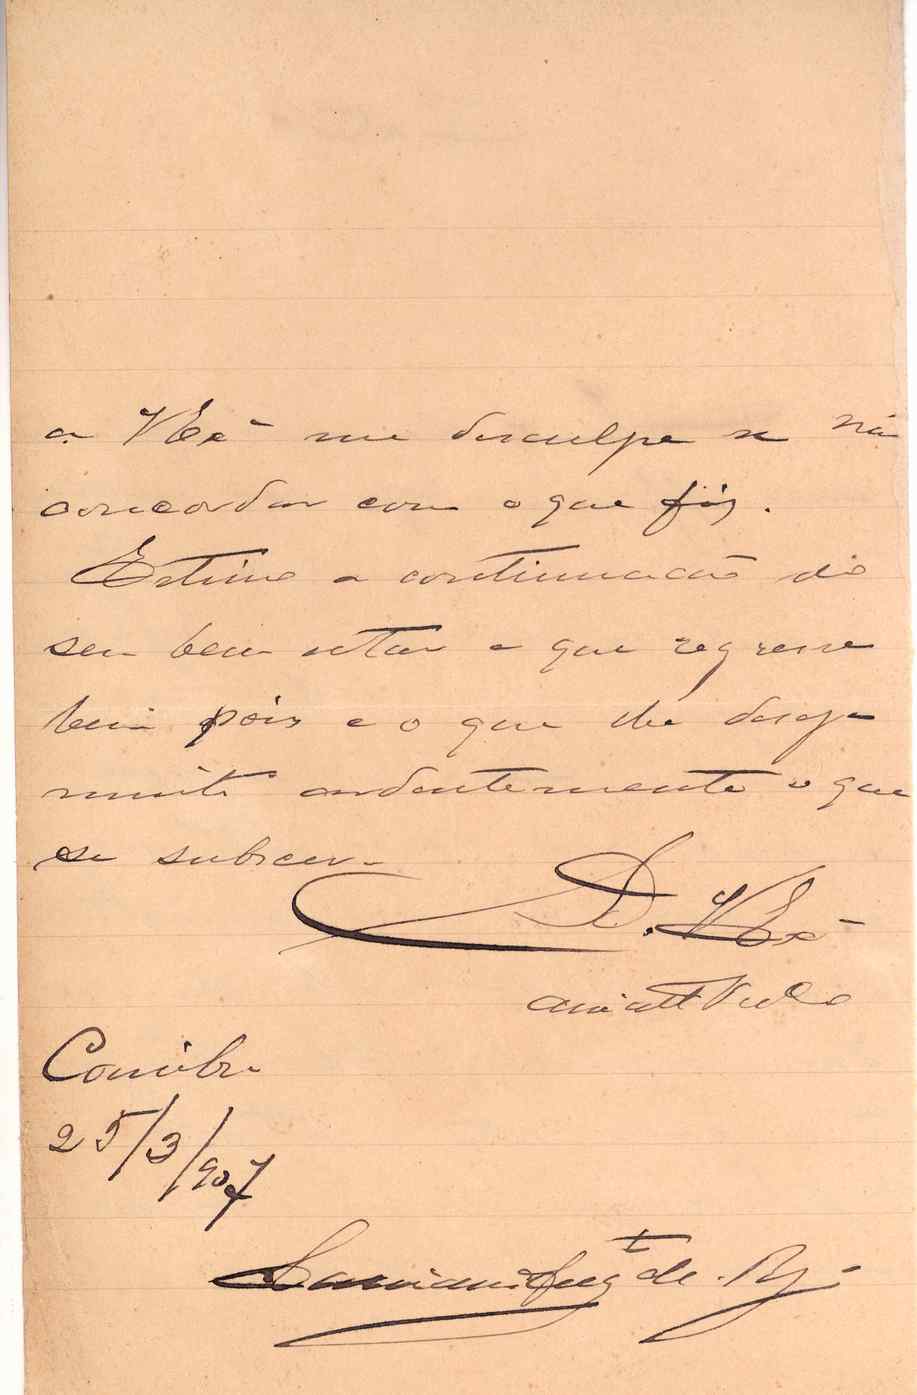 a V Exª me desculpe se não
concordar com o que fiz.
Estimo a continuação do
seu bem estar e que regresse
bem pois é o que lhe deseja
muito ardentemente o que
se subscreve
D. V Exª
Coimbra
25/3/907